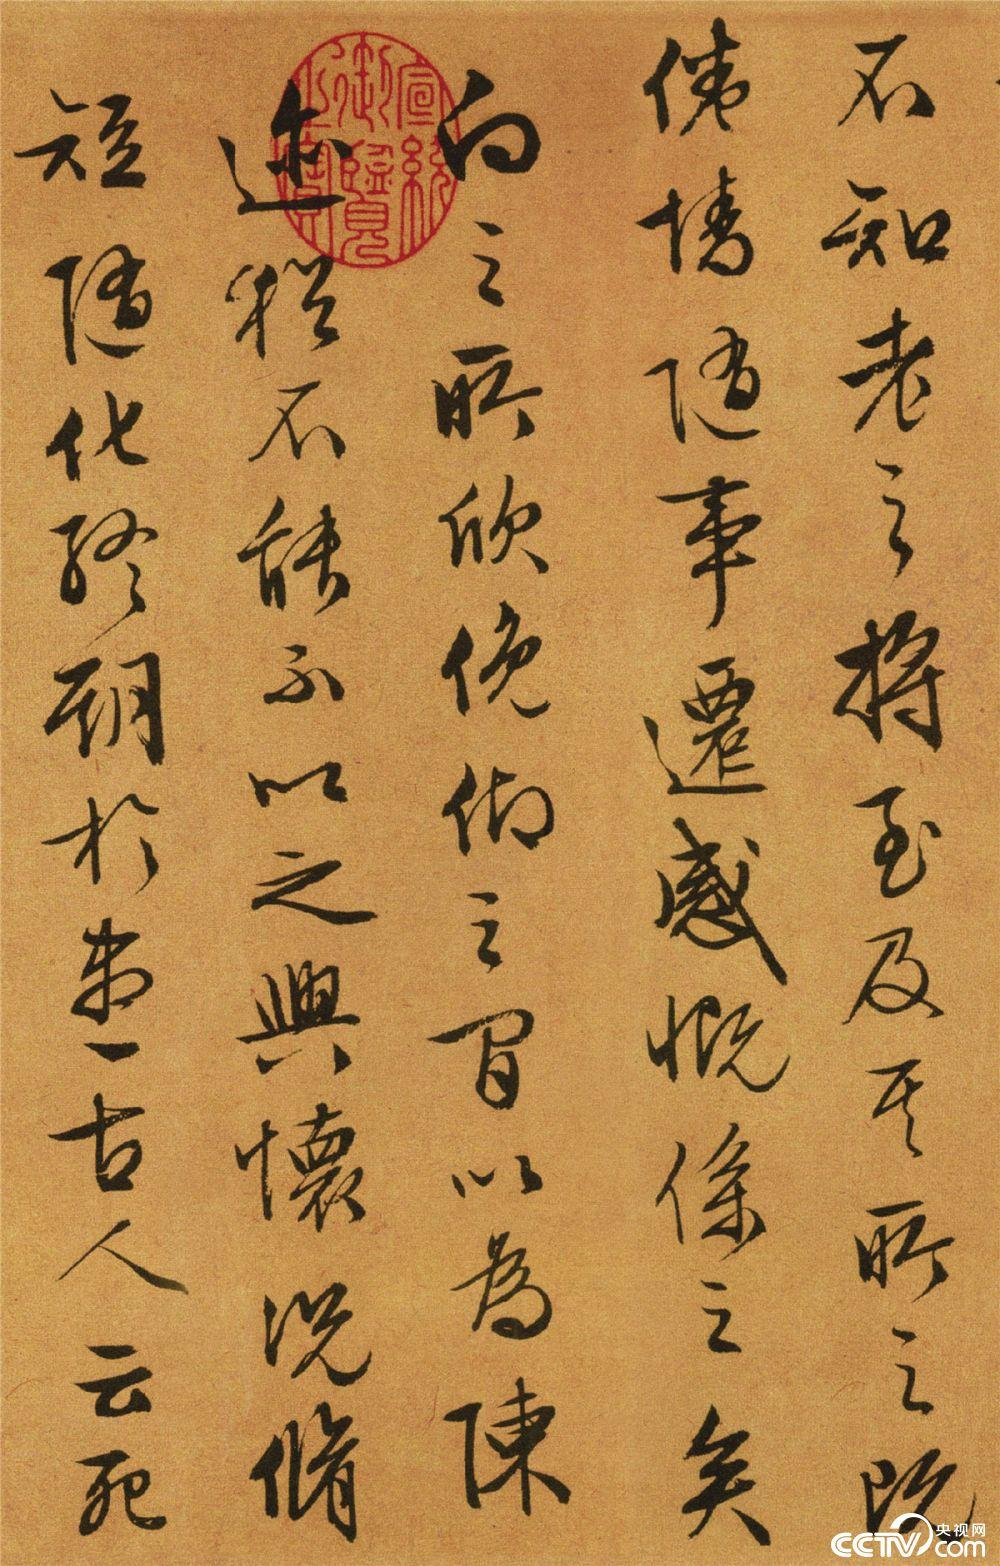 不知老之將至及其所之既
倦情隨事遷感慨係之矣
向之所欣俛仰之間以為陳
迹猶不能不以之興懷況脩
短隨化終期於盡古人云死
宣統御覽之寶
央视网
CCTV.com